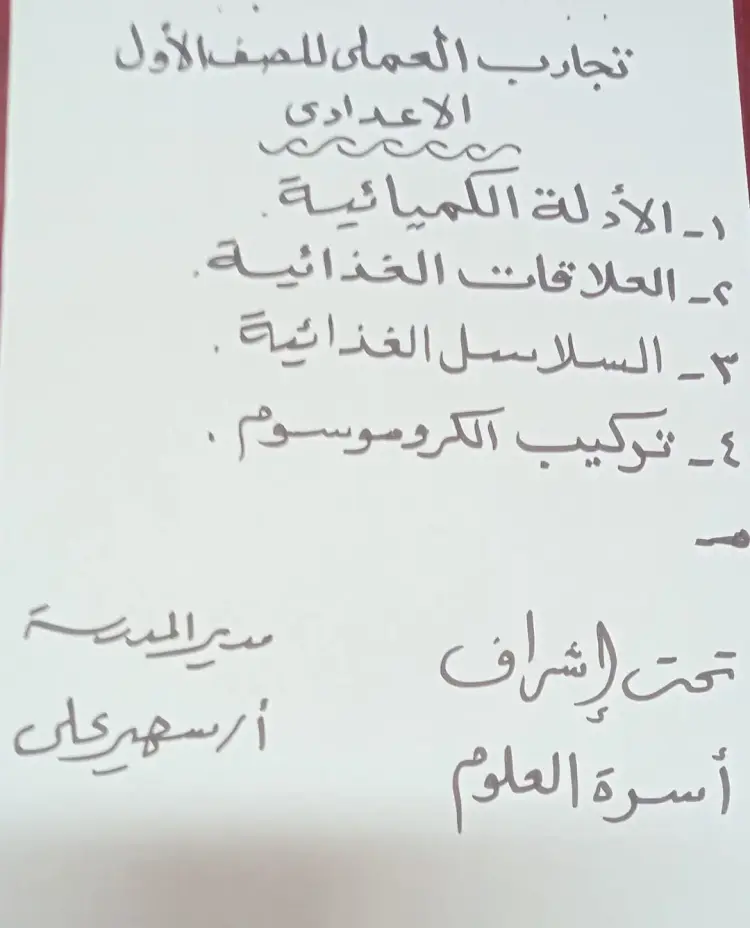 تجارب العملى للصف الأول
الاعدادى
١- الأدلة الكميائية.
٢- العلاقات الغذائية.
٣- السلاسل الغذائية.
٤- تركيب الكروموسوم.
تحت إشراف
أسرة العلوم
مدير المدرسة
أ/ سهير على